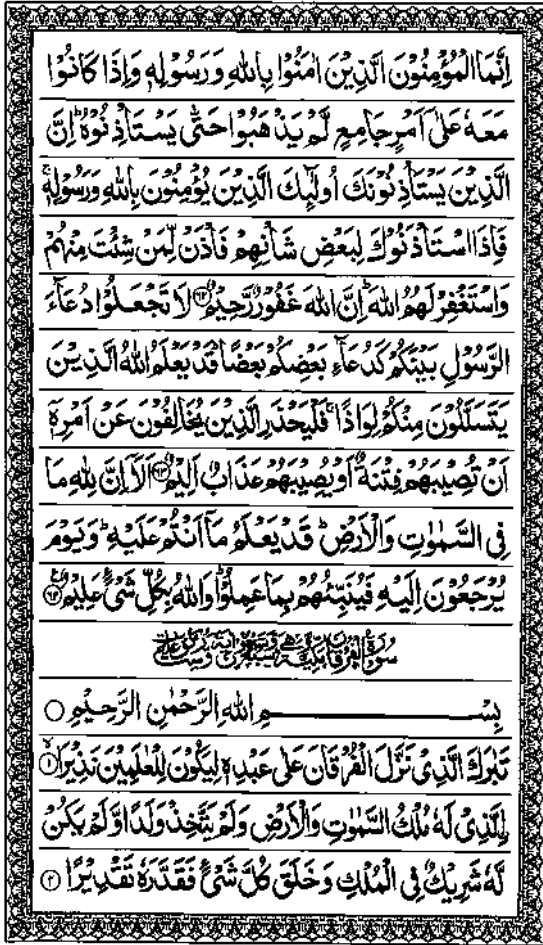 اِنَّمَا الْمُؤْمِنُوْنَ الَّذِيْنَ اٰمَنُوْا بِاللّٰهِ وَرَسُوْلِهٖ وَاِذَا كَانُوْا
مَعَهٗ عَلٰٓى اَمْرٍ جَامِعٍ لَّمْ يَذْهَبُوْا حَتّٰى يَسْتَاْذِنُوْهُ ؕ اِنَّ
الَّذِيْنَ يَسْتَاْذِنُوْنَكَ اُولٰٓئِكَ الَّذِيْنَ يُؤْمِنُوْنَ بِاللّٰهِ وَرَسُوْلِهٖ ۚ
فَاِذَا اسْتَاْذَنُوْكَ لِبَعْضِ شَاْنِهِمْ فَاْذَنْ لِّمَنْ شِئْتَ مِنْهُمْ
وَاسْتَغْفِرْ لَهُمُ اللّٰهَ ؕ اِنَّ اللّٰهَ غَفُوْرٌ رَّحِيْمٌ ۝۶۲ لَا تَجْعَلُوْا دُعَآءَ
الرَّسُوْلِ بَيْنَكُمْ كَدُعَآءِ بَعْضِكُمْ بَعْضًا ؕ قَدْ يَعْلَمُ اللّٰهُ الَّذِيْنَ
يَتَسَلَّلُوْنَ مِنْكُمْ لِوَاذًا ۚ فَلْيَحْذَرِ الَّذِيْنَ يُخَالِفُوْنَ عَنْ اَمْرِهٖٓ
اَنْ تُصِيْبَهُمْ فِتْنَةٌ اَوْ يُصِيْبَهُمْ عَذَابٌ اَلِيْمٌ ۝۶۳ اَلَآ اِنَّ لِلّٰهِ مَا
فِى السَّمٰوٰتِ وَالْاَرْضِ ؕ قَدْ يَعْلَمُ مَآ اَنْتُمْ عَلَيْهِ ؕ وَيَوْمَ
يُرْجَعُوْنَ اِلَيْهِ فَيُنَبِّئُهُمْ بِمَا عَمِلُوْا ؕ وَاللّٰهُ بِكُلِّ شَىْءٍ عَلِيْمٌ ۝۶۴
سُوْرَةُ الْفُرْقَانِ مَكِّيَّةٌ وَّهِيَ
بِسْمِ اللّٰهِ الرَّحْمٰنِ الرَّحِيْمِ ۝
تَبٰرَكَ الَّذِىْ نَزَّلَ الْفُرْقَانَ عَلٰى عَبْدِهٖ لِيَكُوْنَ لِلْعٰلَمِيْنَ نَذِيْرًا ۝۱
اِۨلَّذِىْ لَهٗ مُلْكُ السَّمٰوٰتِ وَالْاَرْضِ وَلَمْ يَتَّخِذْ وَلَدًا وَّلَمْ يَكُنْ
لَّهٗ شَرِيْكٌ فِى الْمُلْكِ وَخَلَقَ كُلَّ شَىْءٍ فَقَدَّرَهٗ تَقْدِيْرًا ۝۲